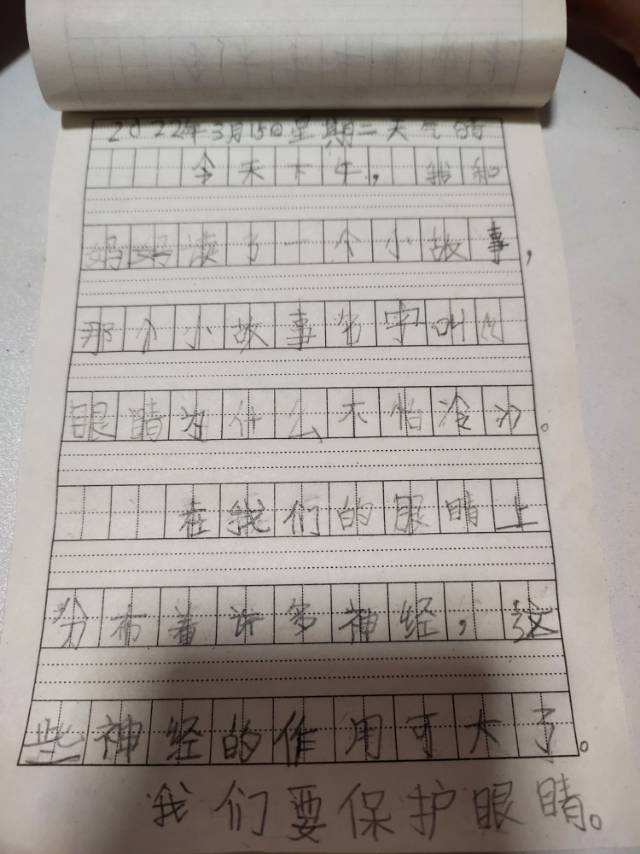 2022年3月15日星期二天气晴
今天下午，我和
妈妈读了一个小故事，
那个小故事名字叫
眼睛为什么不怕冷
在我们的眼睛上
分布着许多神经，这
些神经的作用可大了。
我们要保护眼睛。